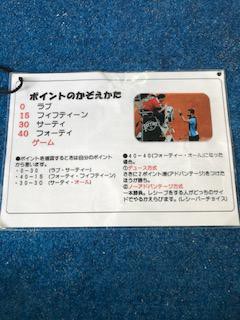 ポイントのかぞえかた
0 ラブ
15 フィフティーン
30 サーティ
40 フォーティ
ゲーム
●ポイントを確認するときは自分のポイント
から言います。
・0-30 (ラブ・サーティー)
・40-15 (フォーティ・フィフティーン)
・30-30 (サーティ・オール)
●40-40(フォーティー・オール)になった
場合。
①デュース方式
さきに2ポイント差(アドバンテージ)をつけた
ほうが勝ち。
②ノーアドバンテージ方式
一本勝負。レシーブをする人がどっちのサイ
ドでやるかえらびます。(レシーバーチョイス)